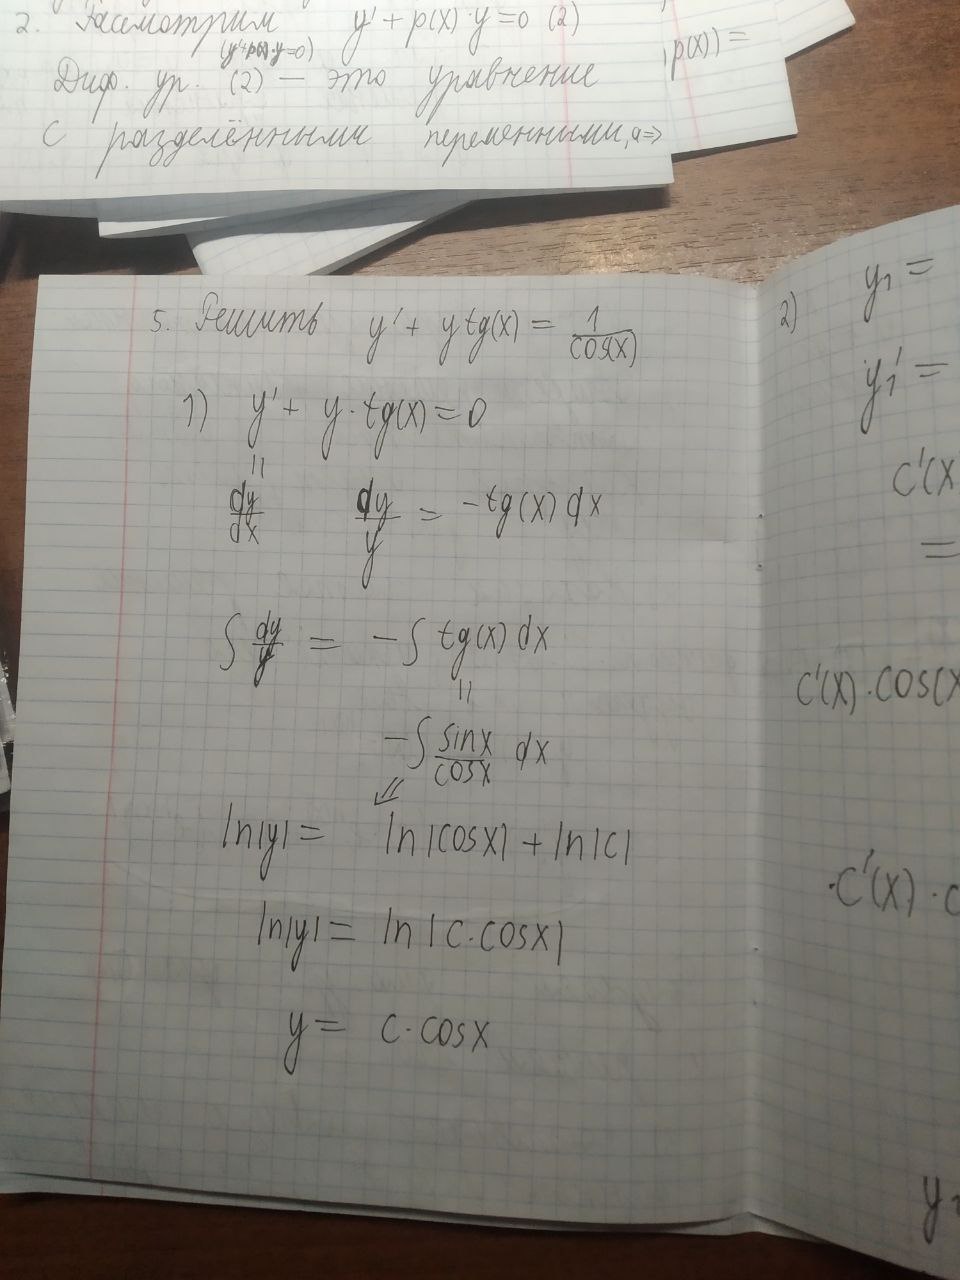 2. Рассмотрим y' + p(x)·y=0 (2)
(y'+p(x)·y=0)
Диф. ур. (2) — это уравнение
с разделёнными переменными, а =>
p(x)) =
5. Решить y' + y tg(x) = 1/cos(x)
1) y' + y·tg(x) = 0
||
dy/dx dy/y = -tg(x) dx
∫ dy/y = -∫ tg(x) dx
||
-∫ sinx/cosx dx
⇙
ln|y| = ln|cosx| + ln|c|
ln|y| = ln|c·cosx|
y = c·cosx
2) y₁ =
y₁' =
c'(x
=
c'(x)·cos(x
·c'(x)·c
y